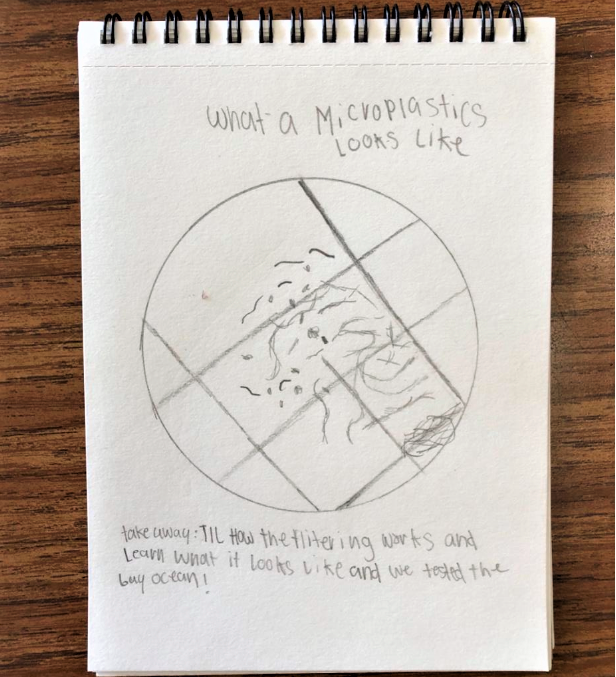 What a Microplastics
Looks Like
take away: TIL How the flitering works and
Learn what it looks like and we tested the
bay ocean!